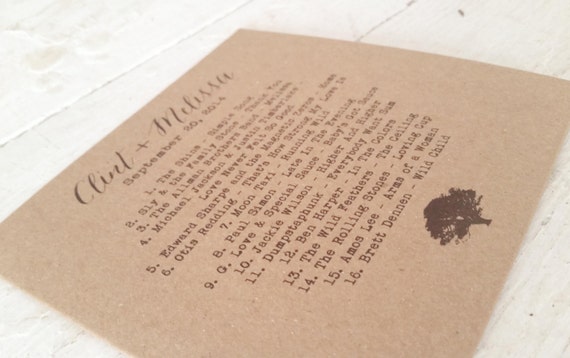 Clint + Melissa
September 20, 2014
1. The Shins - Simple Song
2. Sly & the Family Stone - Thank You
3. The Allman Brothers Band - Melissa
4. Michael Jackson & Justin Timberlake -
Love Never Felt So Good
5. Edward Sharpe and the Magnetic Zeros - Home
6. Otis Redding - That's How Strong My Love is
7. Moon Taxi - Running Wild
8. Paul Simon - Late In The Evening
9. G. Love & Special Sauce - Baby's Got Sauce
10. Jackie Wilson - Higher and Higher
11. Dumpstaphunk - Everybody Want Sum
12. Ben Harper - In The Colors
13. The Wild Feathers - The Ceiling
14. The Rolling Stones - Loving Cup
15. Amos Lee - Arms of a Woman
16. Brett Dennen - Wild Child